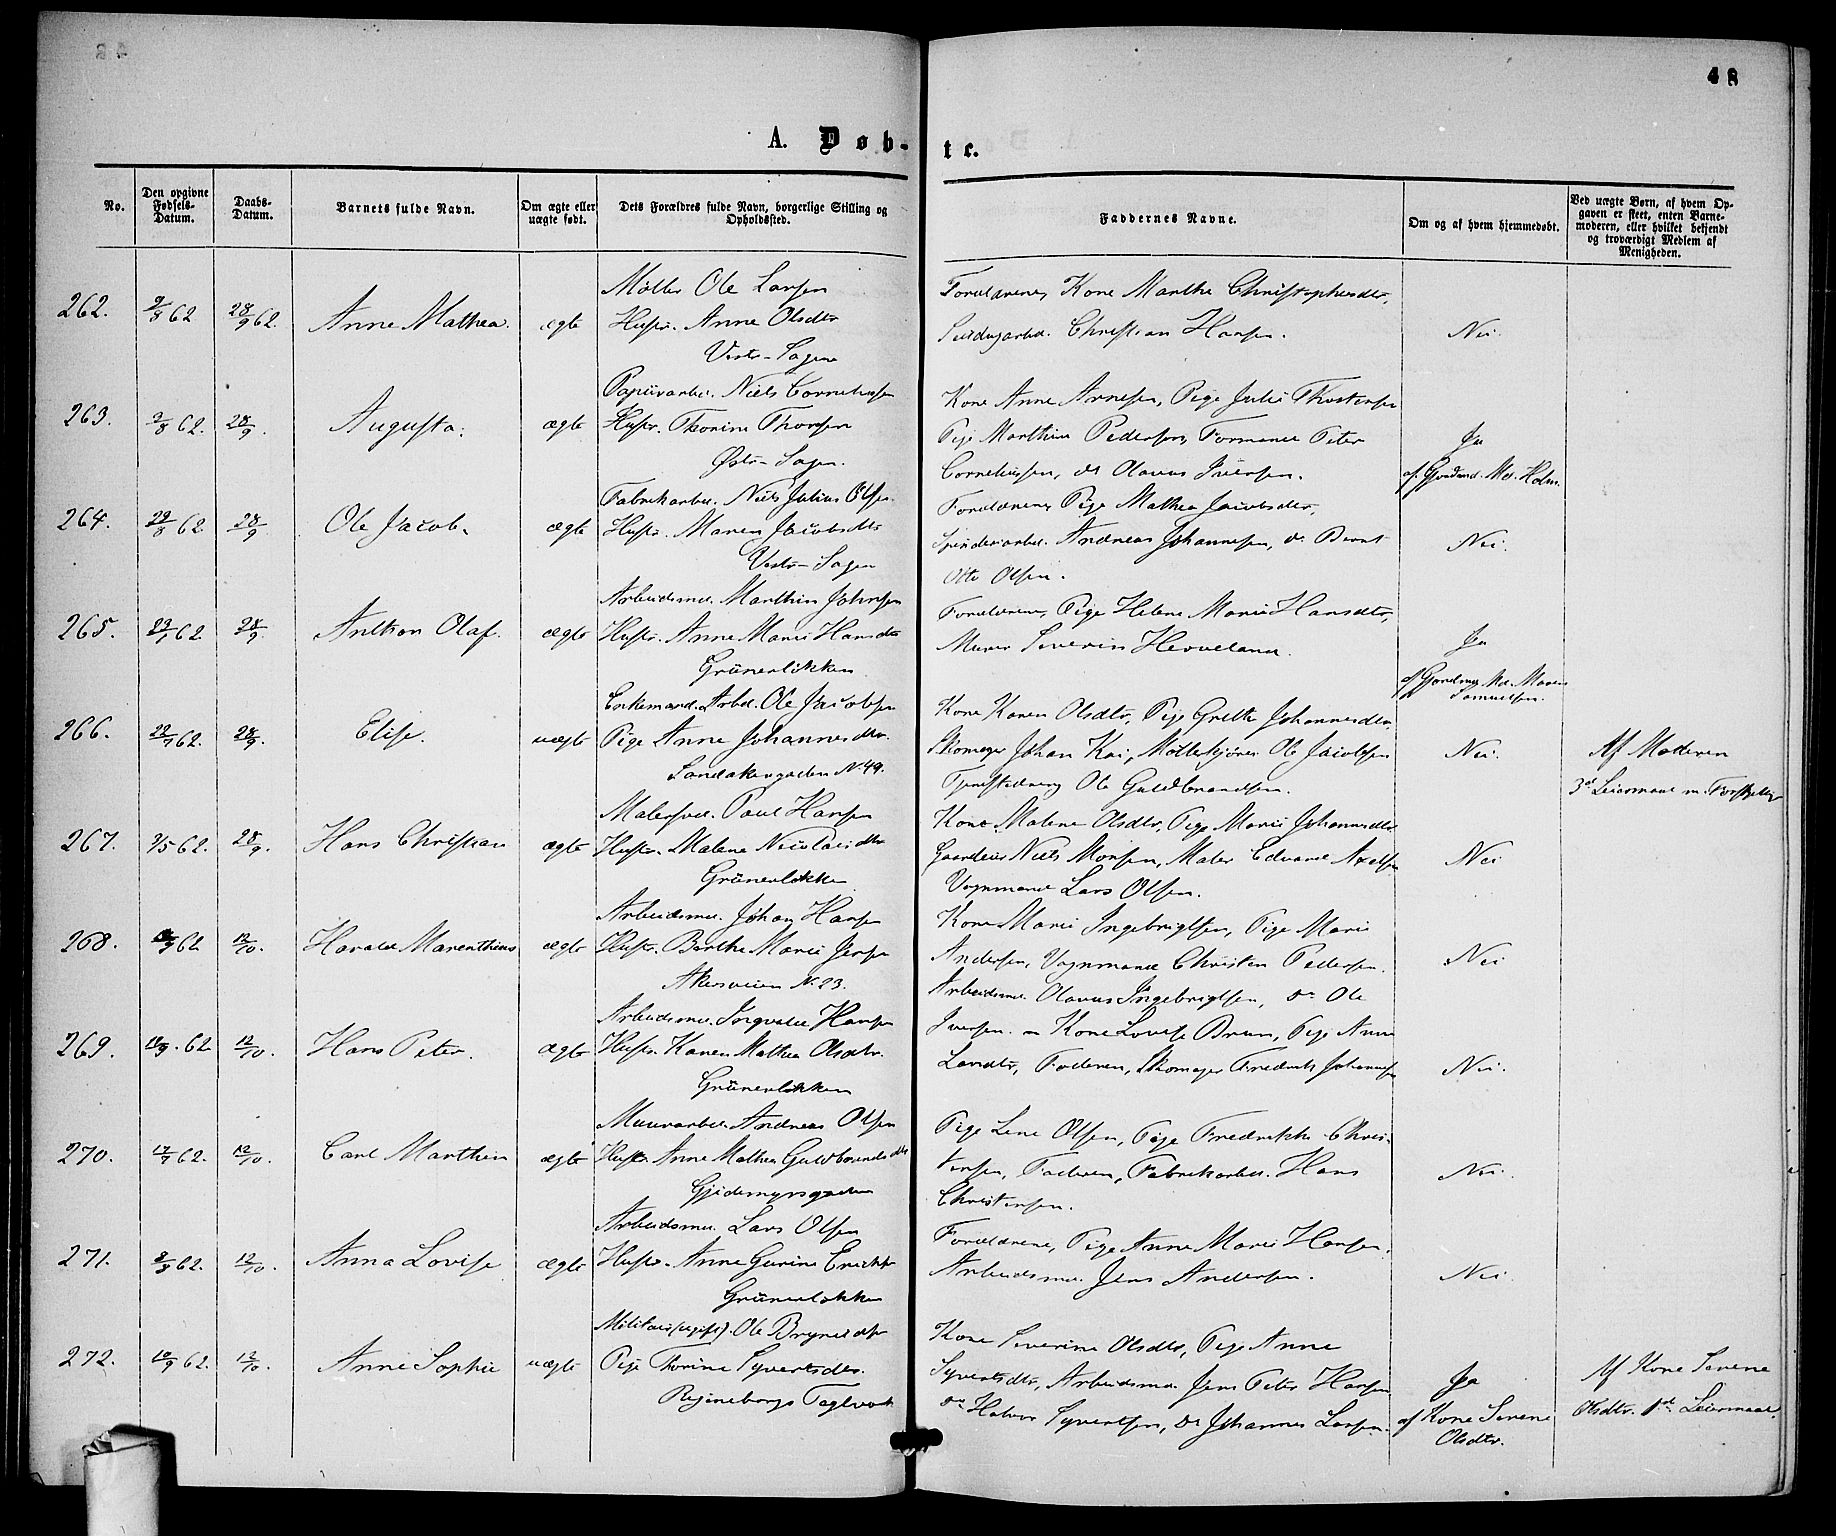 48
A. Døb-
te.
No.
Den opgivne Fødsels-Datum.
Daabs-Datum.
Barnets fulde Navn.
Om ægte eller uægte født.
Dets Forældres fulde Navn, borgerlige Stilling og Opholdssted.
Faddernes Navne.
Om og af hvem hjemmedøbt.
Ved uægte Børn, af hvem Opgaven er skeet, enten Barnemoderen, eller hvilket bekjendt og troværdigt Medlem af Menigheden.
262. 9/8 62 28/9 62. Anne Mathea. ægte
Møller Ole Larsen
Hustr. Anne Olsdtr
Vestr-Sagene
Forældrene, Kone Marthe Christophersdtr,
Christian Hansen.
Nei.
263. 3/8 62. 28/9. Augusta. ægte
Papiirarbei. Niels Corneliussen
Hustr. Thorine Thorsen
Østr-Sagen.
Kone Anne Arnesen, Pige Julie Thostensen
Pige Marthine Pedersen, Formand Peter
Corneliussen, do Olavus Iversen.
Ja
af Gjordmd. Md. Holm.
264. 29/8 62 28/9 Ole Jacob. ægte
Fabrikarbei. Niels Julius Olsen.
Hustr. Maren Jacobsdtr
Vestr-Sagen
Forældrene, Pige Mathea Jacobsdtr,
Spinderiarbei. Andreas Johannesen, do Bernt
Otto Olsen.
Nei.
265. 23/7 62 28/9. Anthon Olaf. ægte
Arbeidsmd. Marthin Johnsen
Hustr. Anne Marie Hansdtr
Grünerløkken
Forældrene, Pige Helene Marie Hansdtr,
Murer Severin Hesveland.
Ja
af Gjordmd. Md. Maren
Samuelsen.
266. 22/7 62. 28/9. Elise. uægte
Enkemand. Arbd. Ole Jacobsen
Pige Anne Johannesdtr.
Sandakergaden N. 49.
Kone Karen Olsdtr, Pige Grethe Johannesdtr
Skomager Johan Kai, Møllekjører Ole Jacobsen
Tjenestedreng Ole Guldbrandsen.
Nei.
Af Moderen
3de Leiermaal m. Forskjellig
267. 3/5 62. 28/9. Hans Christian ægte
Malersvd. Paul Hansen
Hustr. Malene Nicolaidtr
Grünerløkken
Kone Malene Olsdtr, Pige Marie Johannesdtr
Gaardeier Niels Monsen, Maler Edvard Axelsen
Vognmand Lars Olsen.
Nei
268. /9 62 12/10. Harald Marenthius ægte
Arbeidsmd. Johan Hansen
Hustr. Berthe Marie Jensen
Akersveien N. 23.
Kone Marie Ingebrigtsen, Pige Marie
Andersen, Vognmand Christen Pedersen.
Arbeidsmd. Olavus Ingebrigtsen, do Ole
Nei
269. 18/9. 62 12/10. Hans Peter. ægte
Arbeidsmd. Ingvald Hansen
Hustr. Karen Mathea Olsdtr.
Grünerløkken
Iversen. – Kone Lovise Brun, Pige Anne
Larsdtr, Faderen, Skomager Fredrik Johannesen
Nei.
270. 17/7 62. 12/10. Carl Marthin ægte
Murerarbei. Andreas Olsen
Hustr. Anne Mathea Guldbrandsdtr
Gjidemyrsgaden
Pige Lene Olsen, Pige Fredrikke Chris-
tensen, Faderen, Fabrikarbei. Hans
Christensen.
Nei.
271. 8/9 62. 12/10. Anna Lovise ægte
Arbeidsmd. Lars Olsen
Hustr. Anne Gurine Ericks
Grünerløkken
Forældrene, Pige Anne Marie Hansen.
Arbeidsmd. Jens Andersen.
Nei.
272. 10/9 62. 12/10. Anne Sophie uægte
Militair (ugift). Ole Brynildse
Pige Thorine Syvertsdtr.
Regineborgs Teglverk
Kone Severine Olsdtr, Pige Anne
Syvertsdtr, Arbeidsmd. Jens Peter Hansen
do Halvor Syvertsen, do Johannes Larsen.
Ja
af Kone Serene
Olsdtr.
Af Kone Serene
Olsdtr. 1ste Leiermaal.